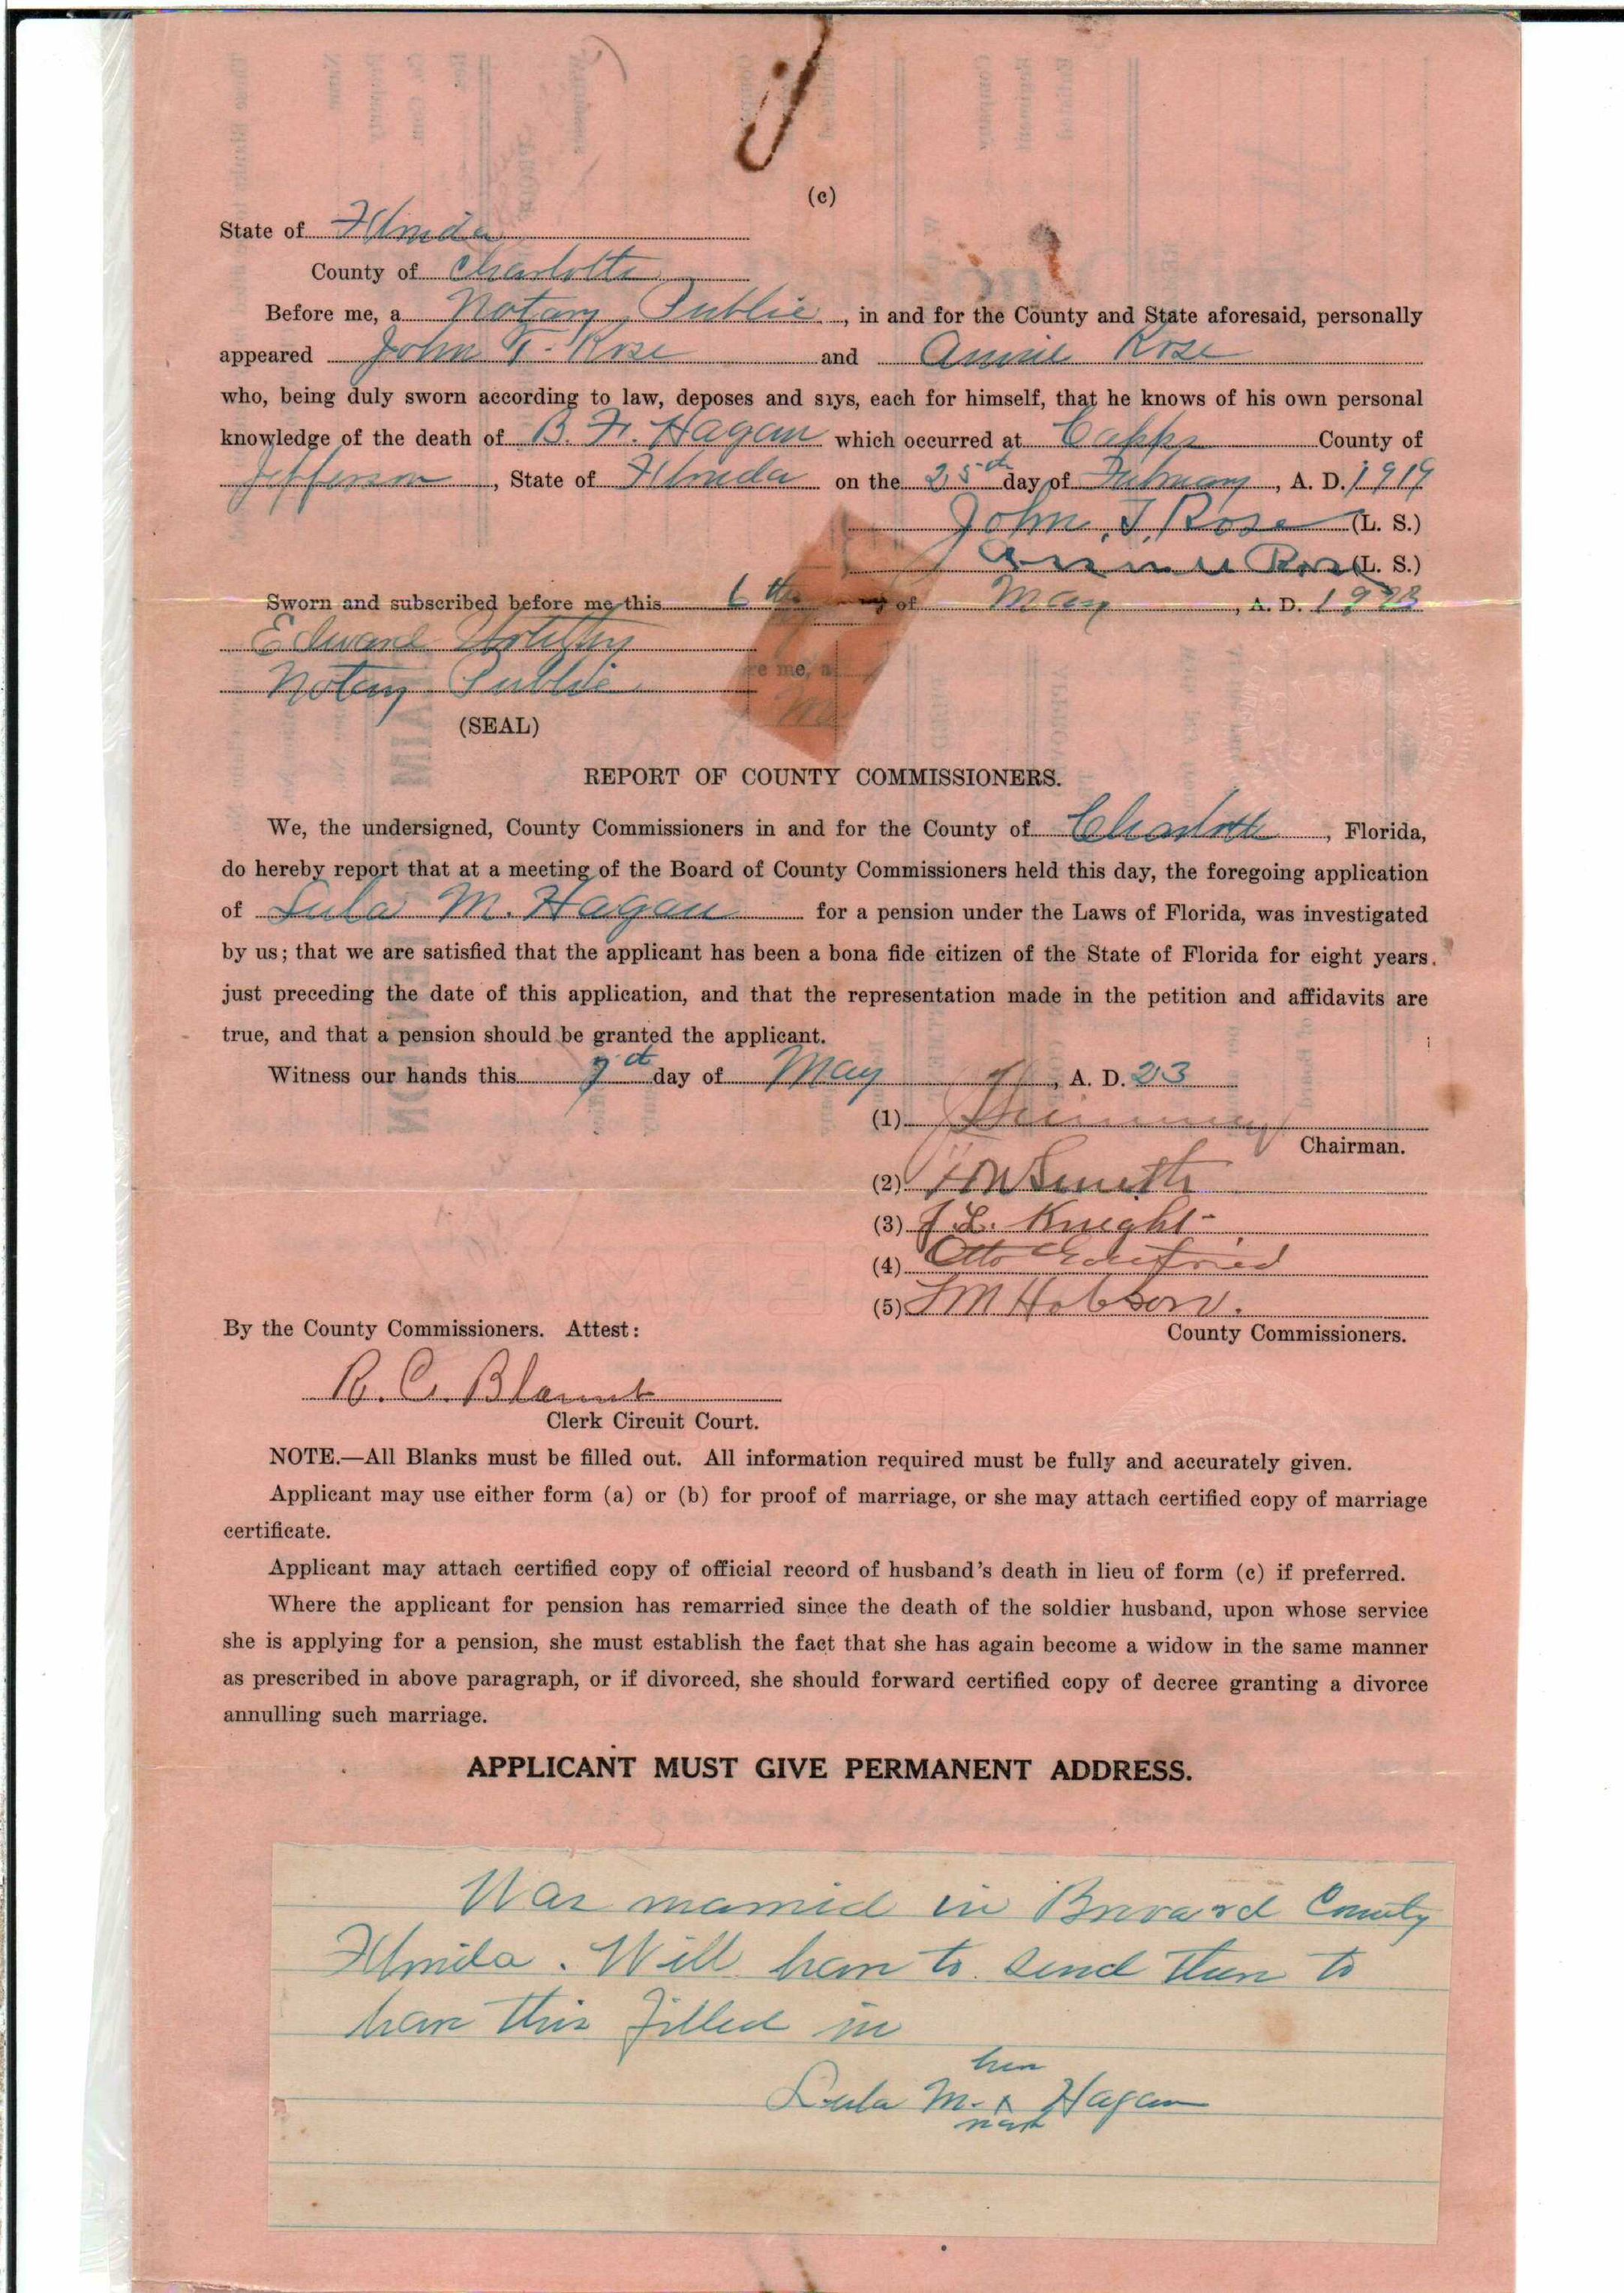 (c)
State of Florida
County of Charlotte
Before me, a Notary Public, in and for the County and State aforesaid, personally
appeared John T. Rose and Annie Rose
who, being duly sworn according to law, deposes and says, each for himself, that he knows of his own personal
knowledge of the death of B. F. Hagan which occurred at Capps County of
Jefferson, State of Florida on the 25th day of February, A. D. 1919
John T. Rose (L. S.)
Annie Rose (L. S.)
Sworn and subscribed before me this 6th of May, A. D. 1923
Edward
Notary Public
(SEAL)
e me, a
REPORT OF COUNTY COMMISSIONERS.
We, the undersigned, County Commissioners in and for the County of Charlotte, Florida,
do hereby report that at a meeting of the Board of County Commissioners held this day, the foregoing application
of Lula M. Hagan for a pension under the Laws of Florida, was investigated
by us; that we are satisfied that the applicant has been a bona fide citizen of the State of Florida for eight years.
just preceding the date of this application, and that the representation made in the petition and affidavits are
true, and that a pension should be granted the applicant.
Witness our hands this 7th day of May, A. D. 23
(1)
Chairman.
(2) Smith
(3) J. L. Knight
(4) Otto
(5) Hobson.
County Commissioners.
By the County Commissioners. Attest:
R. C. Blount
Clerk Circuit Court.
NOTE.—All Blanks must be filled out. All information required must be fully and accurately given.
Applicant may use either form (a) or (b) for proof of marriage, or she may attach certified copy of marriage
certificate.
Applicant may attach certified copy of official record of husband's death in lieu of form (c) if preferred.
Where the applicant for pension has remarried since the death of the soldier husband, upon whose service
she is applying for a pension, she must establish the fact that she has again become a widow in the same manner
as prescribed in above paragraph, or if divorced, she should forward certified copy of decree granting a divorce
annulling such marriage.
APPLICANT MUST GIVE PERMANENT ADDRESS.
Was married in Brevard County
Florida. Will have to send there to
have this filled in
her
Lula M. x Hagan
mark